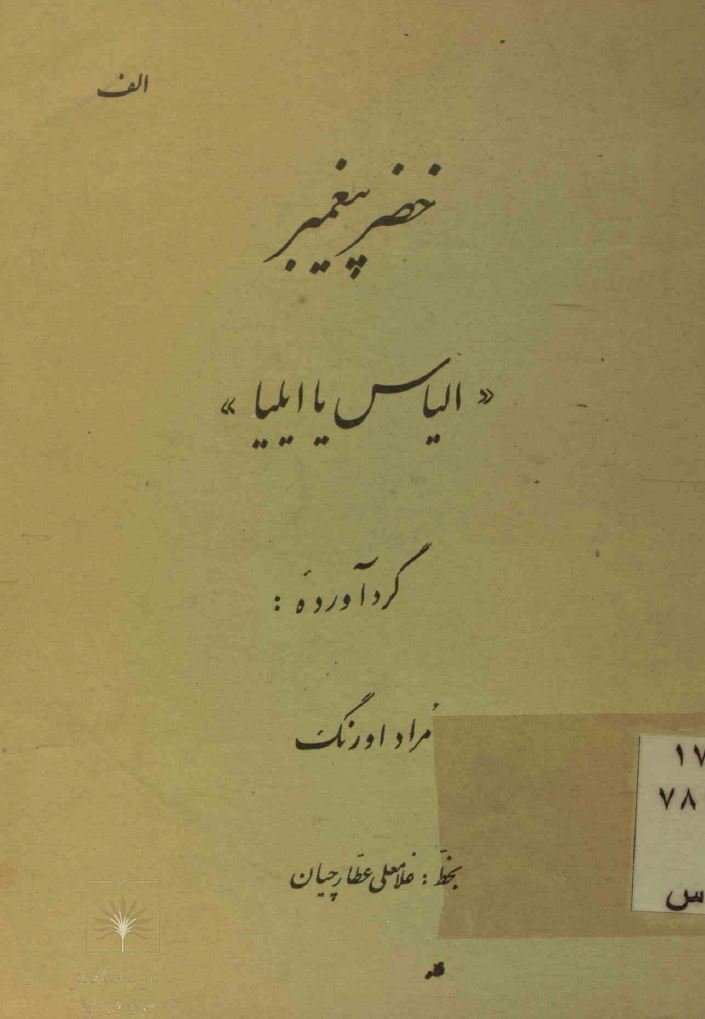 الف
خضر پیغمبر
«الیاس یا ایلیا»
گردآوردهٔ :
مُراد اورنگ
بخطّ : غلامعلی عطّارچیان
۱۷
۷۸
س